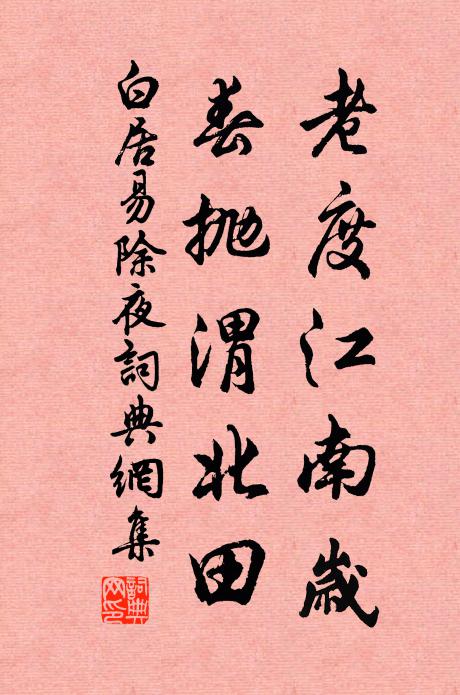 老度江南歲
春拋渭北田
白居易除夜詞典網集
詞典网印